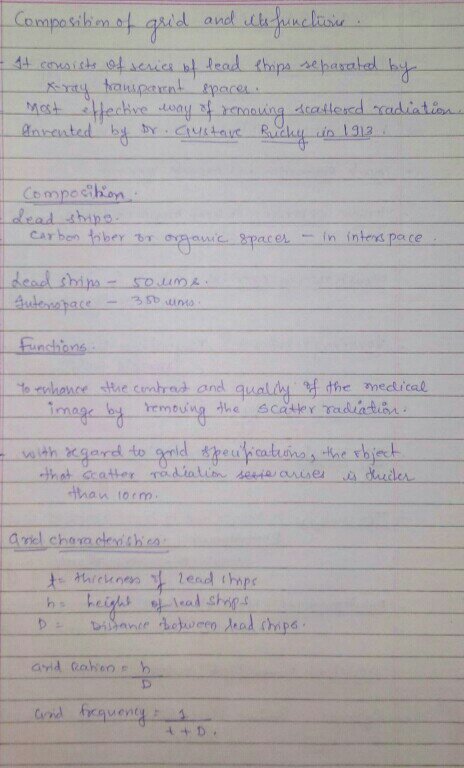 Composition of grid and its functions.
- It consists of series of lead strips separated by
x-ray transparent spaces.
Most effective way of removing scattered radiation.
Invented by Dr. Gustave Bucky in 1913.
Composition.
Lead strips.
Carbon fiber or organic spacer - in interspace.
Lead strips - 50 ums.
Interspace - 350 ums.
Functions.
To enhance the contrast and quality of the medical
image by removing the scatter radiation.
- with regard to grid specifications, the object
that scatter radiation arises is thicker
than 10cm.
Grid characteristics.
t = thickness of lead strips
h = height of lead strips
D = Distance between lead strips.
Grid ration = h
D
Grid frequency = 1
t + D.